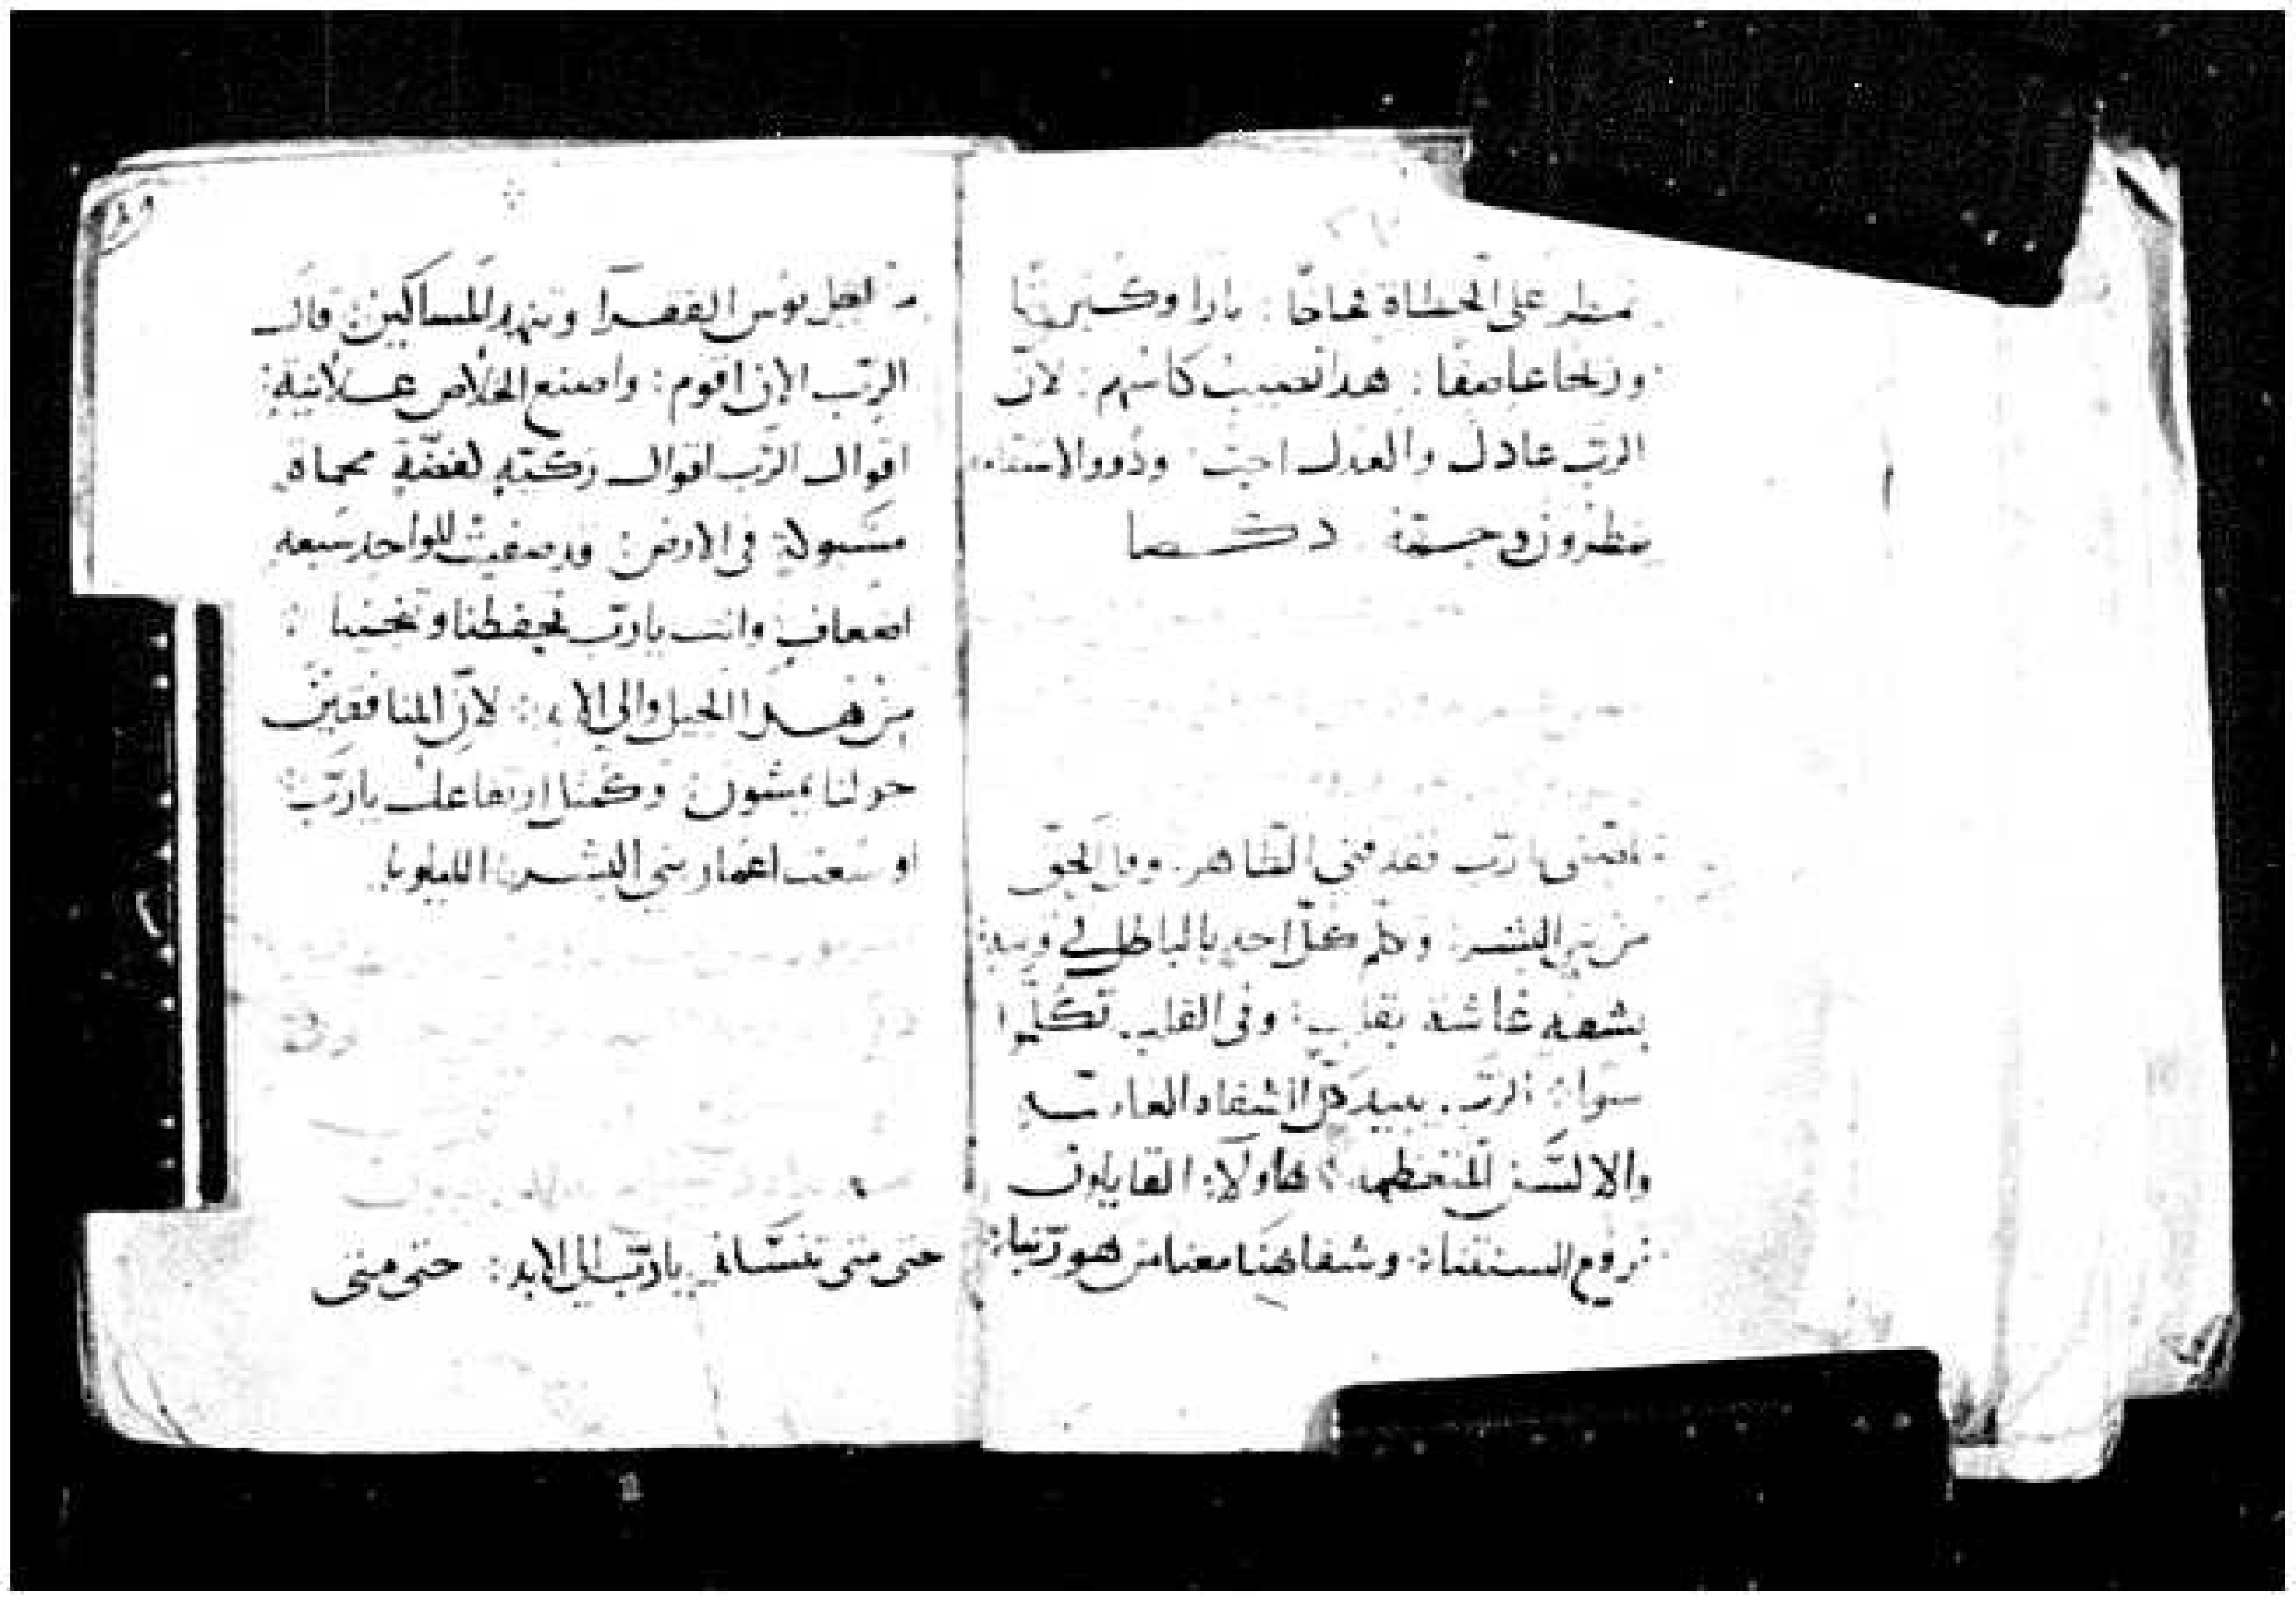 يمطر على الخطاة فخاخًا : نارا وكبريتا
وريحا عاصفا : هذا نصيب كاسهم : لان
الرب عادل والعدل احب : وذوو الاستقامه
ينظرون وجهه :
يا رب فقد فنى الطاهر . وقل الحق
من بنى البشر : وتكلم كل احد بالباطل
بشفه غاشه بقلب : وفي القلب تكلموا
سوا : الرب . يبيد كل الشفاه الغاشه
والالسن المتعظمه : هاولاء القايلون
نرفع السنتنا : وشفاهنا معنا من هو ربنا :
من اجل بوس الفقرا وتنهد المساكين : قال
الرب الان اقوم : واصنع الخلاص علانية :
اقوال الرب اقوال زكيّه كفضّة محماة
مسبوكة في الارض : قد صفيت للواحد سبعه
اضعاف وانت يا رب تحفظنا وتنجينا :
من هذا الجيل والى الابد : لانّ المنافقين
حولنا يمشون : وكمثل ارتفاعك يا ربّ :
اوسعت اعمار بني البشر : الليلويا .
حتى متى تنسانى يا ربّ الى الابد : حتى متى